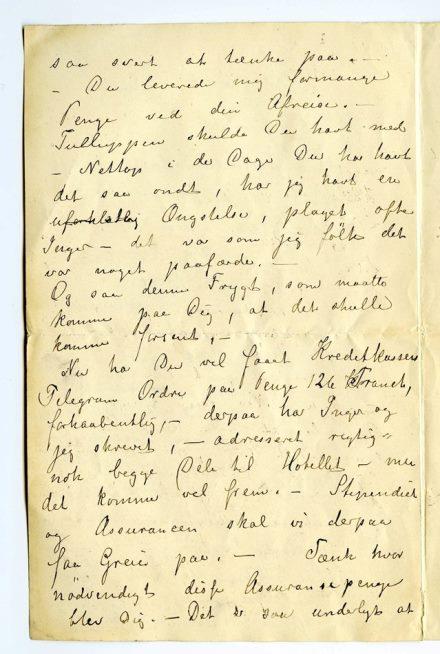 saa svært at tænke paa. –
– Du leverede mig formange
Penge ved din Afreise. –
Tulluppen skulde Du havt med
– Nettop i de Dage Du har havt
det saa ondt, har jeg havt en
uforklarlig Ængstelse, plaget ofte
Inger – det var som jeg følte det
var noget paafærde. –
Og saa denne Frygt, som maatte
komme paa Dig, at det skulle
komme forsent, –
Nu har Du vel faaet Kreditkassens
Telegram Ordre paa Penge 126 Francs,
forhaabentlig, – derpaa har Inger og
jeg skrevet, – adresseret rigtig=
nok begge Dele til Hotellet – men
det kommer vel frem. – Stipendiet
og Assurancen skal vi derpaa
faa Greie paa. – Tænk hvor
nødvendigt disse Assurancepenge
blev Dig. – Det er saa underligt at